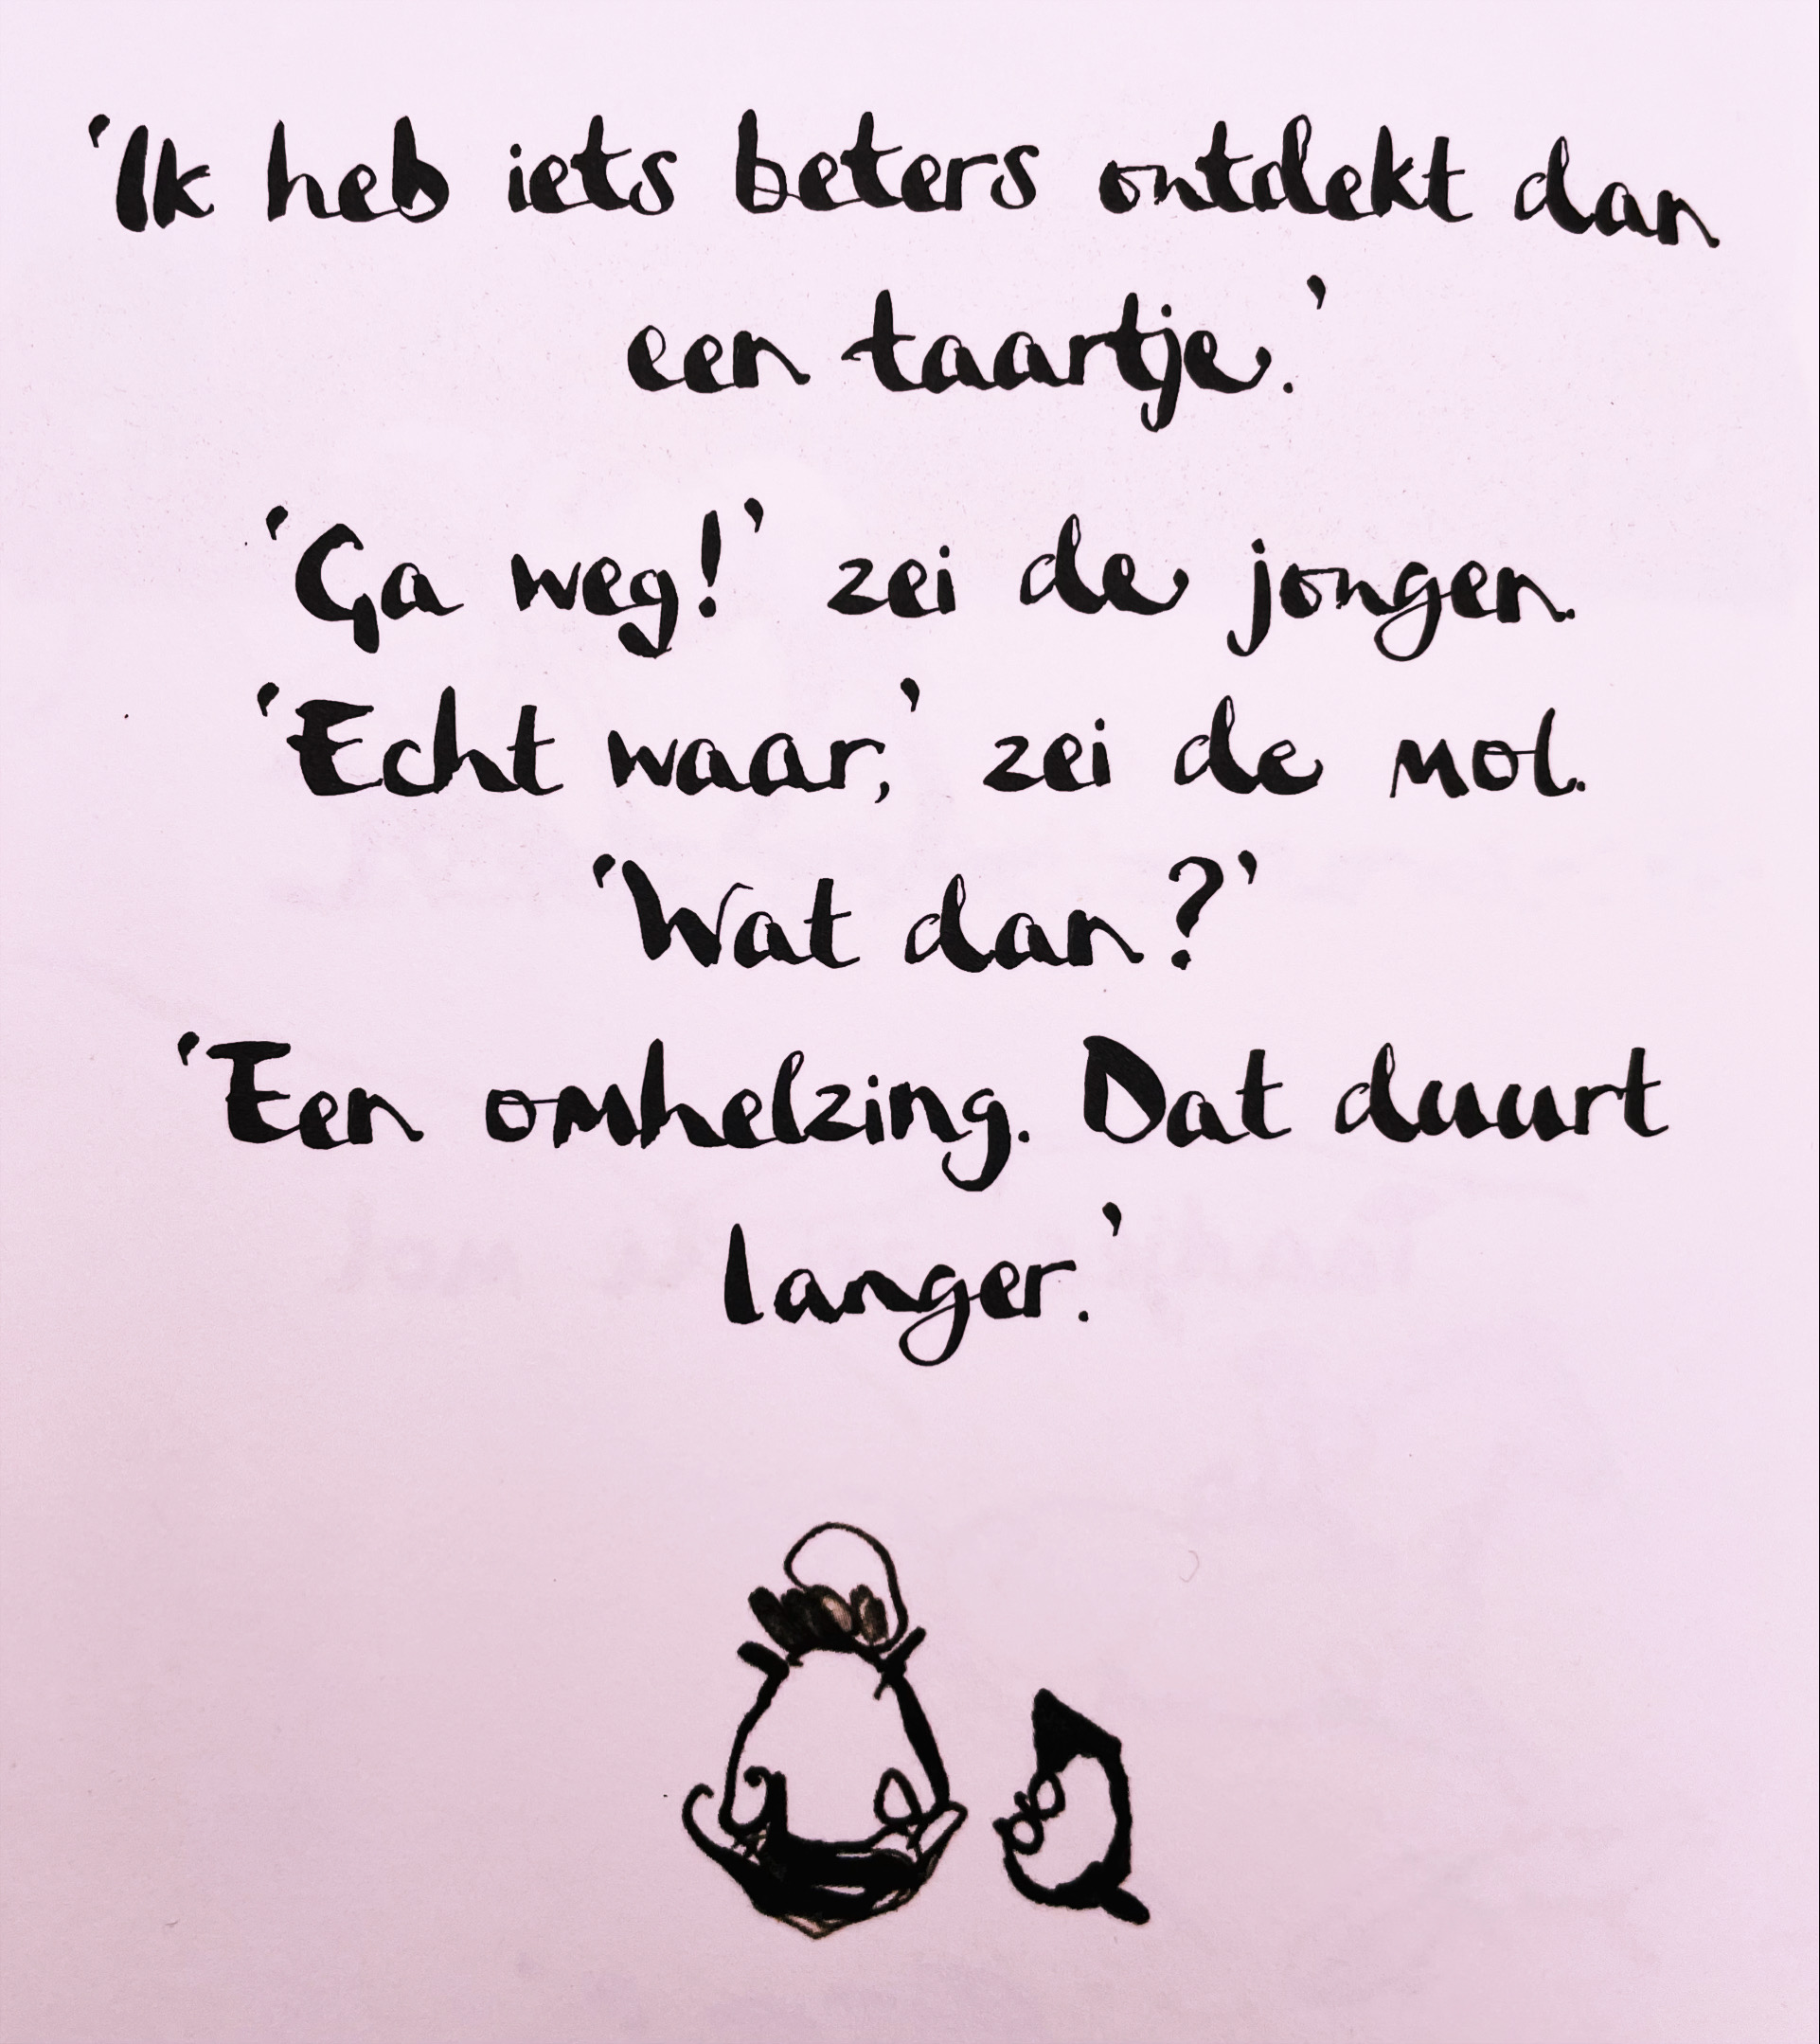 ‘Ik heb iets beters ontdekt dan
een taartje.’
‘Ga weg!’ zei de jongen.
‘Echt waar,’ zei de mol.
‘Wat dan?’
‘Een omhelzing. Dat duurt
langer.’